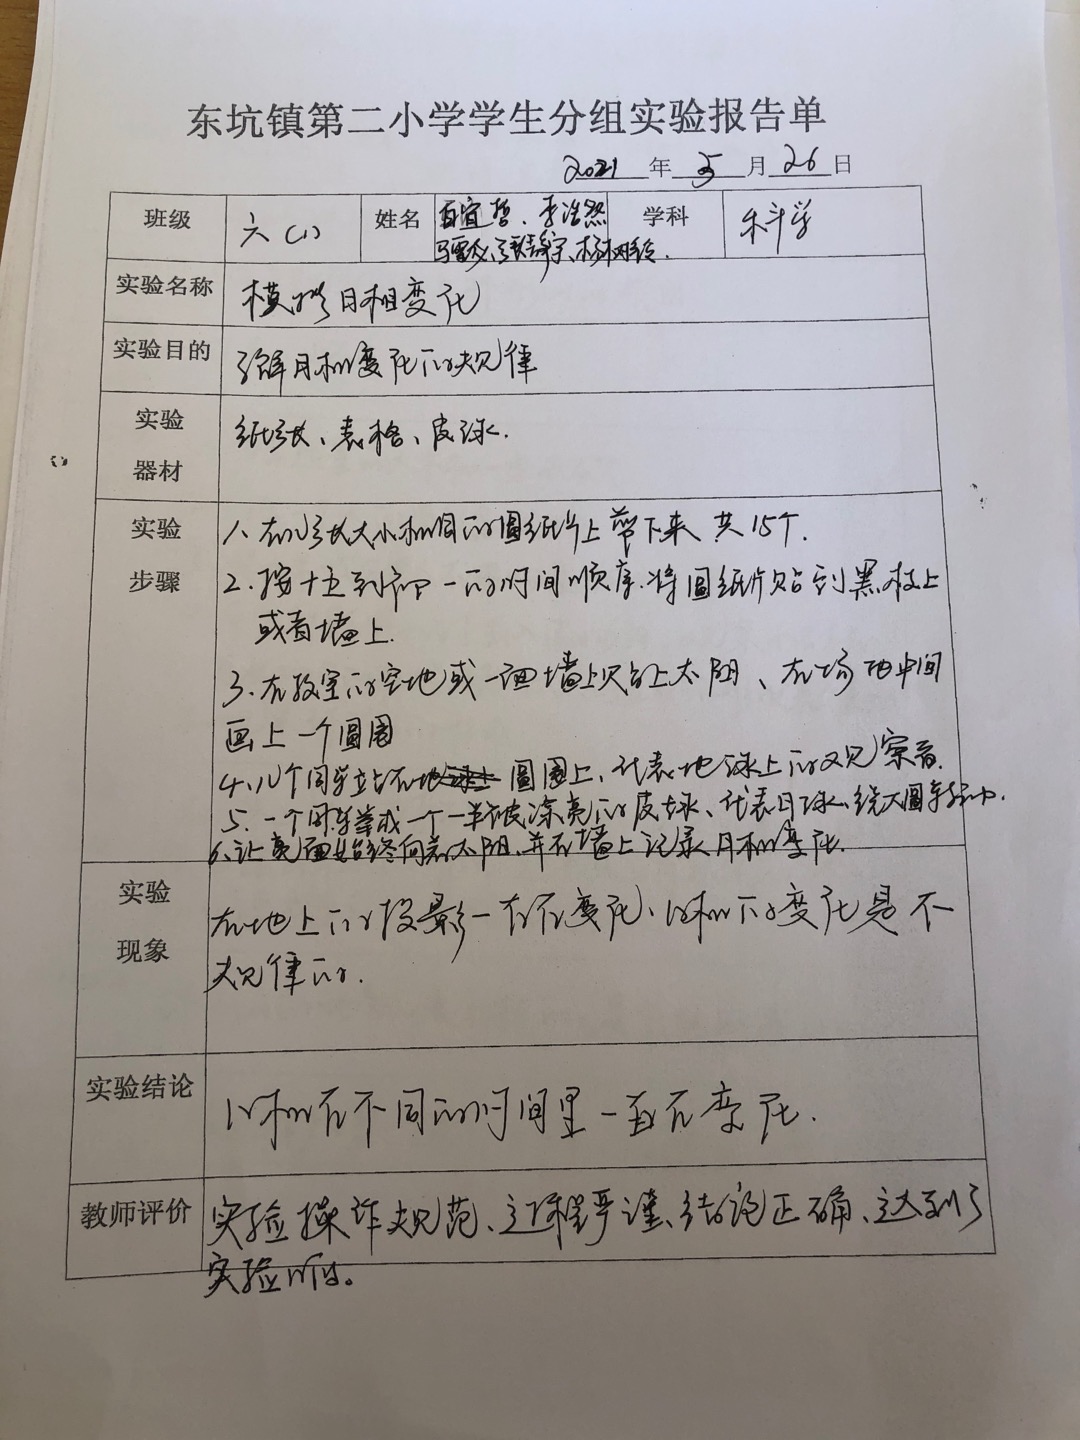 东坑镇第二小学学生分组实验报告单
2021 年 5 月 26 日
班级 六(1) 姓名 李浩然 学科 科学
实验名称 模拟月相变化
实验目的 月相变化的规律
实验
器材
纸张、表格、皮球.
实验
步骤
1、在 张大小相同的圆纸片上 下来 共15个.
2.按十五到初一的时间顺序.将圆纸片贴到黑板上
或者墙上.
3.在教室的空地或一面墙上贴上太阳、在场地中间
画上一个圆圈
4、几个同学站在 圆圈上、代表地球上的观察者.
5.一个同学举成一个一半被涂亮的皮球、代表月球、绕大圆
6、让亮面始终向着太阳、并在墙上记录月相变化.
实验
现象
在地上的投影一直在变化、月相的变化是不
规律的.
实验结论 月相在不同的时间里一直在变化.
教师评价 实验操作规范、过程严谨、结论正确、达到了
实验 。